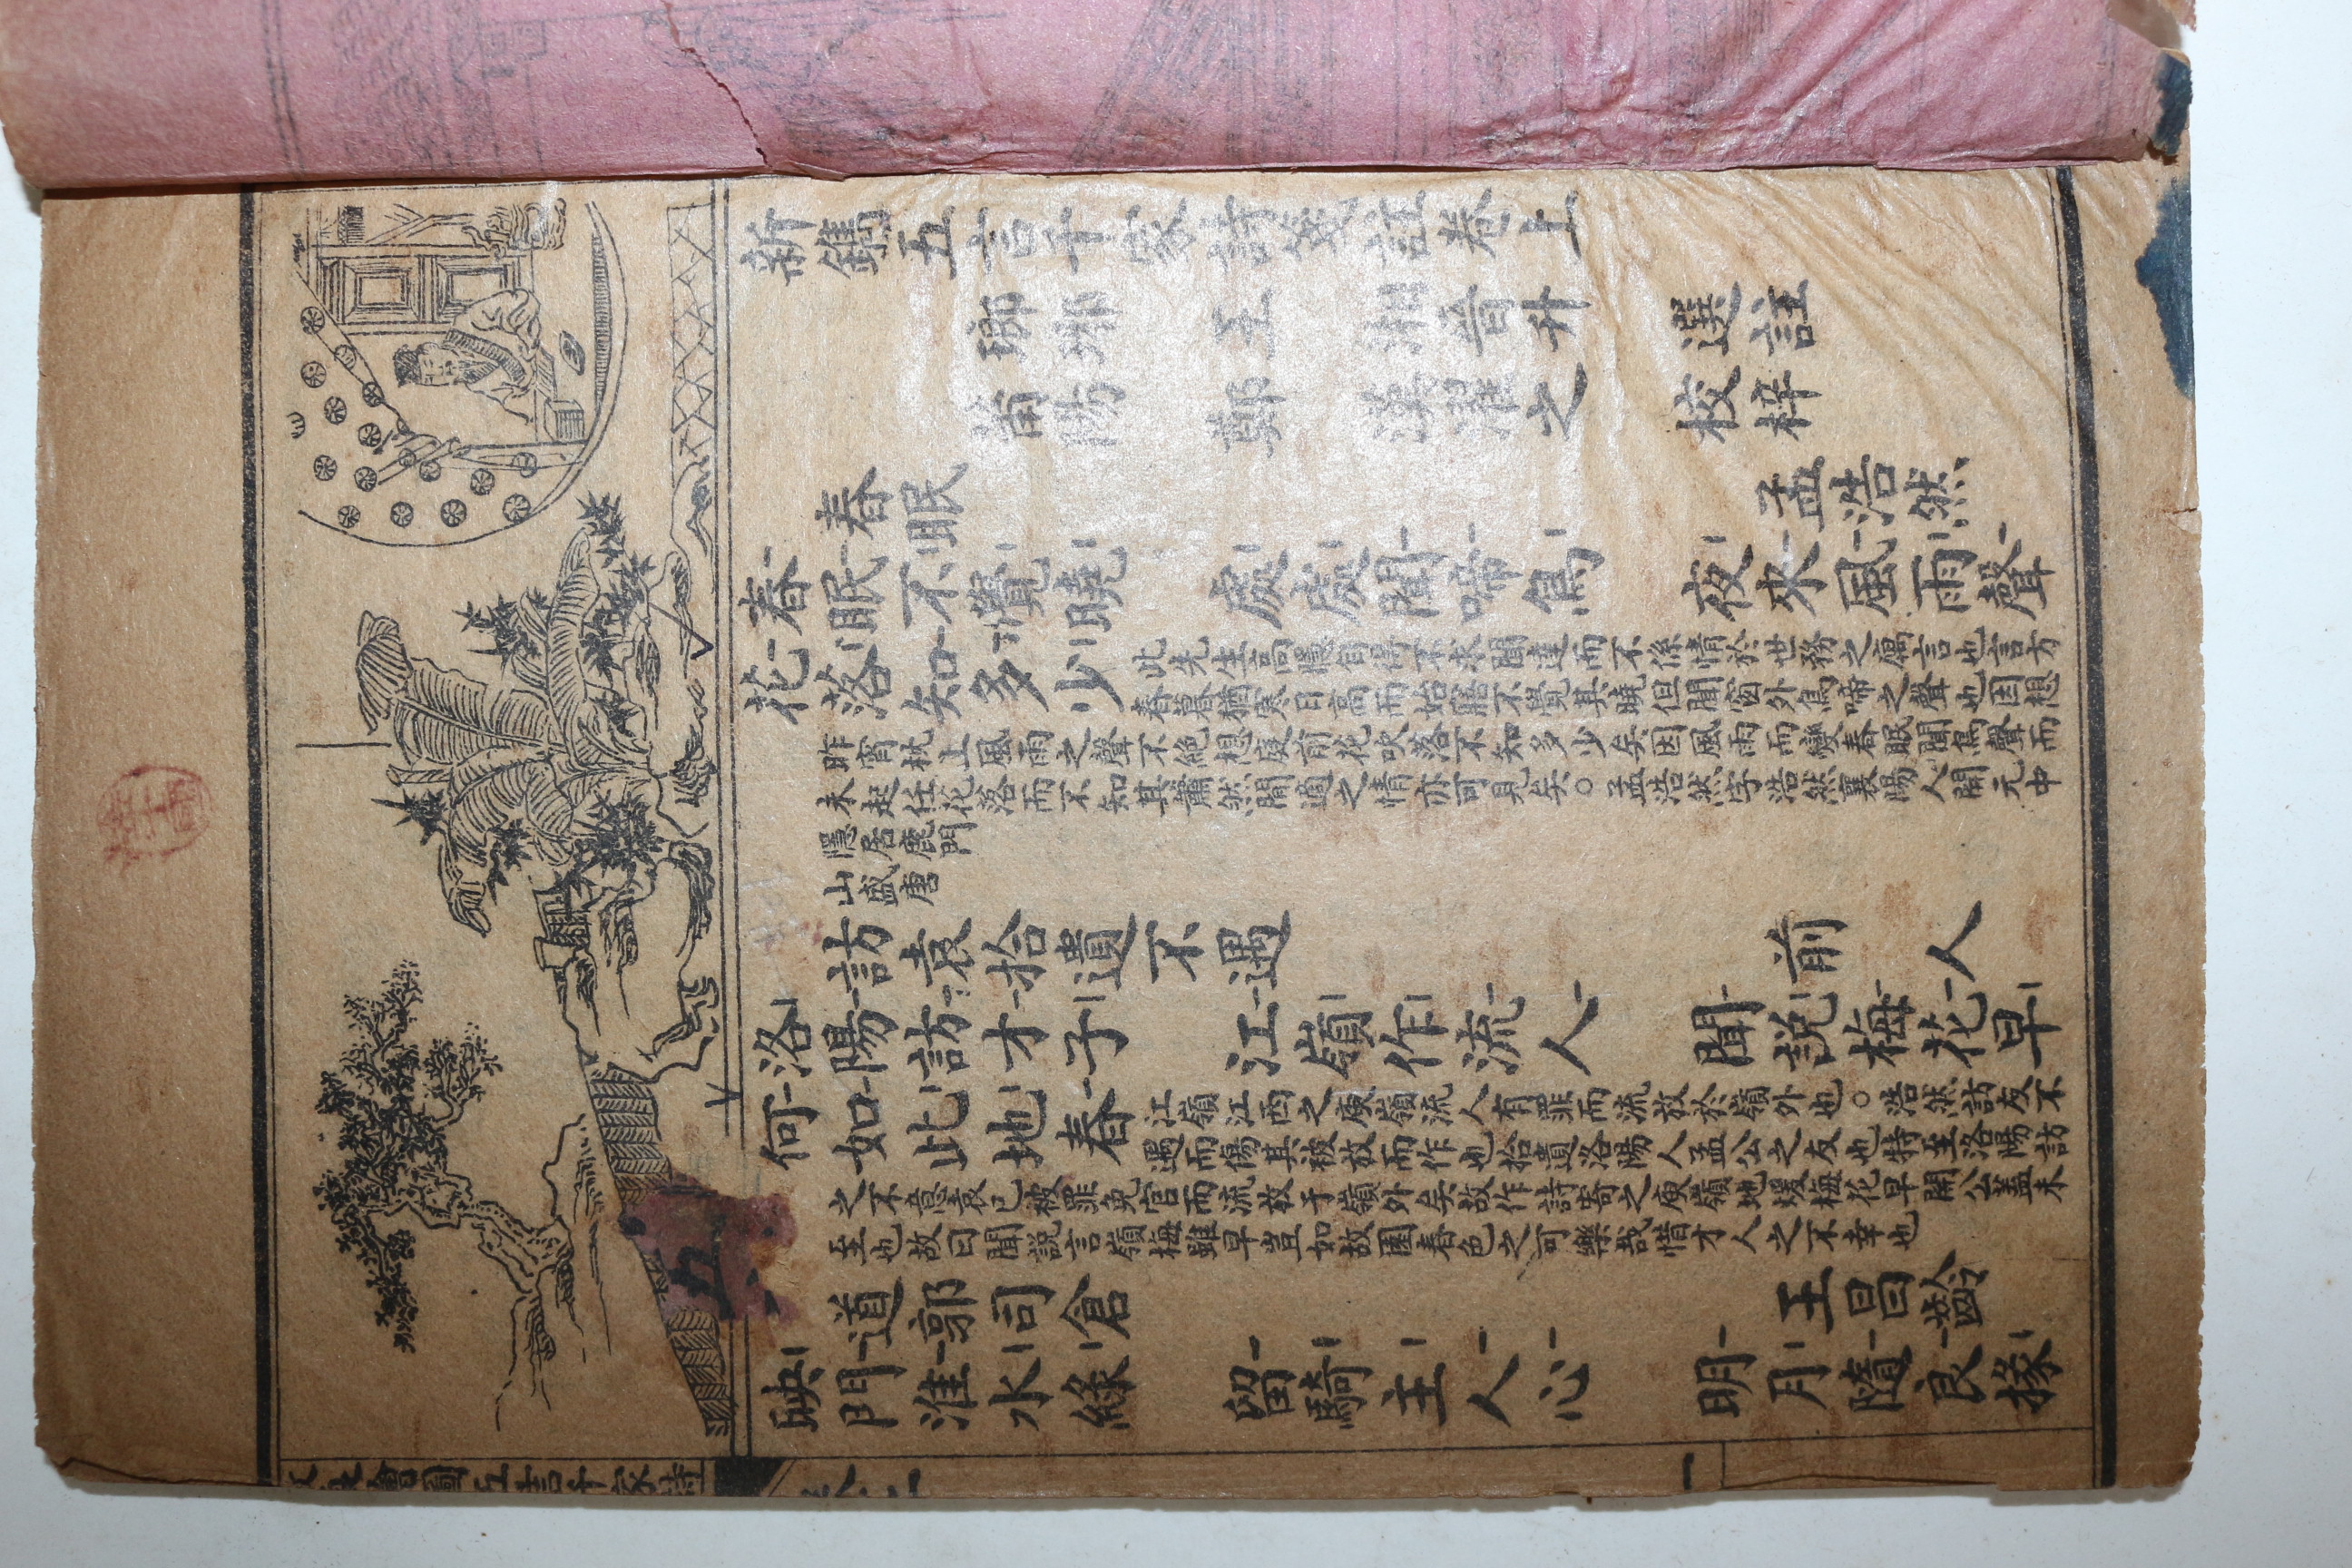 新鐫五言千家詩箋註卷上
瑯琊 王 湘晉升 選註
莆陽 鄭 漢濯之 校梓
春眠 孟浩然
春眠不覺曉 處處聞啼鳥 夜來風雨聲
花落知多少
此先生高隱自得不求聞達而不係情於世務之寓言也言方
春暮猶寒日高而始寤不覺其曉但聞窗外鳥啼之聲也因想
昨宵枕上風雨之聲不絶想庭前花吹落不知多少矣因風雨而變春眠聞鳥聲而
未起任花落而不知其蕭然閒適之情亦可見矣○孟浩然字浩然襄陽人開元中
隱居鹿門
山盛唐
訪袁拾遺不遇 前人
洛陽訪才子 江嶺作流人 聞説梅花早
何如此地春
江嶺江西之庾嶺流人有罪而流放於嶺外也○浩然訪友不
遇而傷其被放而作也拾遺洛陽人孟公之友也特至洛陽訪
之不意袁已被罪免官而流放于嶺外矣故作詩寄之庾嶺地煖梅花早開公盖未
至也故曰聞説言嶺梅雖早豈如故園春色之可樂哉惜才人之不幸也
道郭司倉 王昌齡
映門淮水緑 留騎主人心 明月隨良掾
繪圖五言千家詩
一
五
六